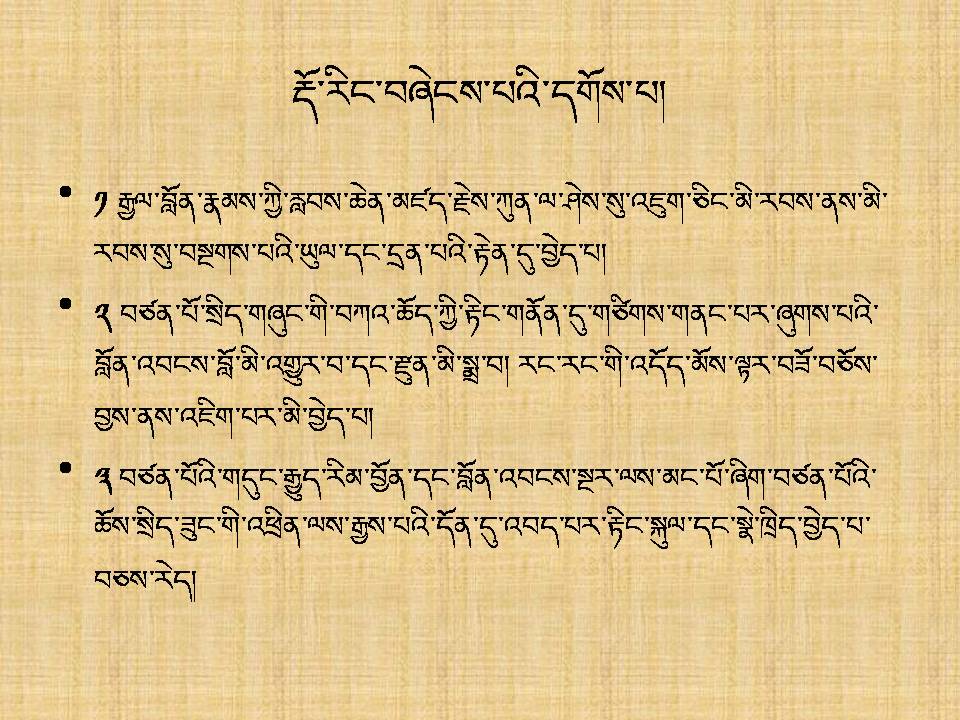 རྡོ་རིང་བཞེངས་པའི་དགོས་པ།
• ༡ རྒྱལ་བློན་རྣམས་ཀྱི་རླབས་ཆེན་མཛད་རྗེས་ཀུན་ལ་ཤེས་སུ་འཇུག་ཅིང་མི་རབས་ནས་མི་
རབས་སུ་བསྔགས་པའི་ཡུལ་དང་དྲན་པའི་རྟེན་དུ་བྱེད་པ།
• ༢ བཙན་པོ་སྲིད་གཞུང་གི་བཀའ་ཆོད་ཀྱི་རྟིང་གནོན་དུ་གཙིགས་གནང་པར་ཞུགས་པའི་
བློན་འབངས་བློ་མི་འགྱུར་བ་དང་རྫུན་མི་སྨྲ་བ། རང་རང་གི་འདོད་མོས་ལྟར་བཟོ་བཅོས་
བྱས་ནས་འཇིག་པར་མི་བྱེད་པ།
• ༣ བཙན་པོའི་གདུང་རྒྱུད་རིམ་བྱོན་དང་བློན་འབངས་སྔར་ལས་མང་པོ་ཞིག་བཙན་པོའི་
ཆོས་སྲིད་ཟུང་གི་འཕྲིན་ལས་རྒྱས་པའི་དོན་དུ་འབད་པར་རྟིང་སྐུལ་དང་སྣེ་ཁྲིད་བྱེད་པ་
བཅས་རེད།